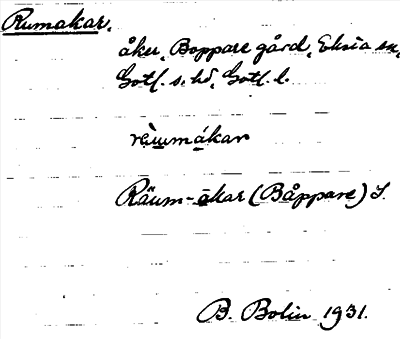 Rumakar,
åker, Boppare gård, Eksta sn,
Gotl. s. hd, Gotl. l.
rèu̯mákar
Räum-åkar (Båppare) S.
B. Bolin 1931.